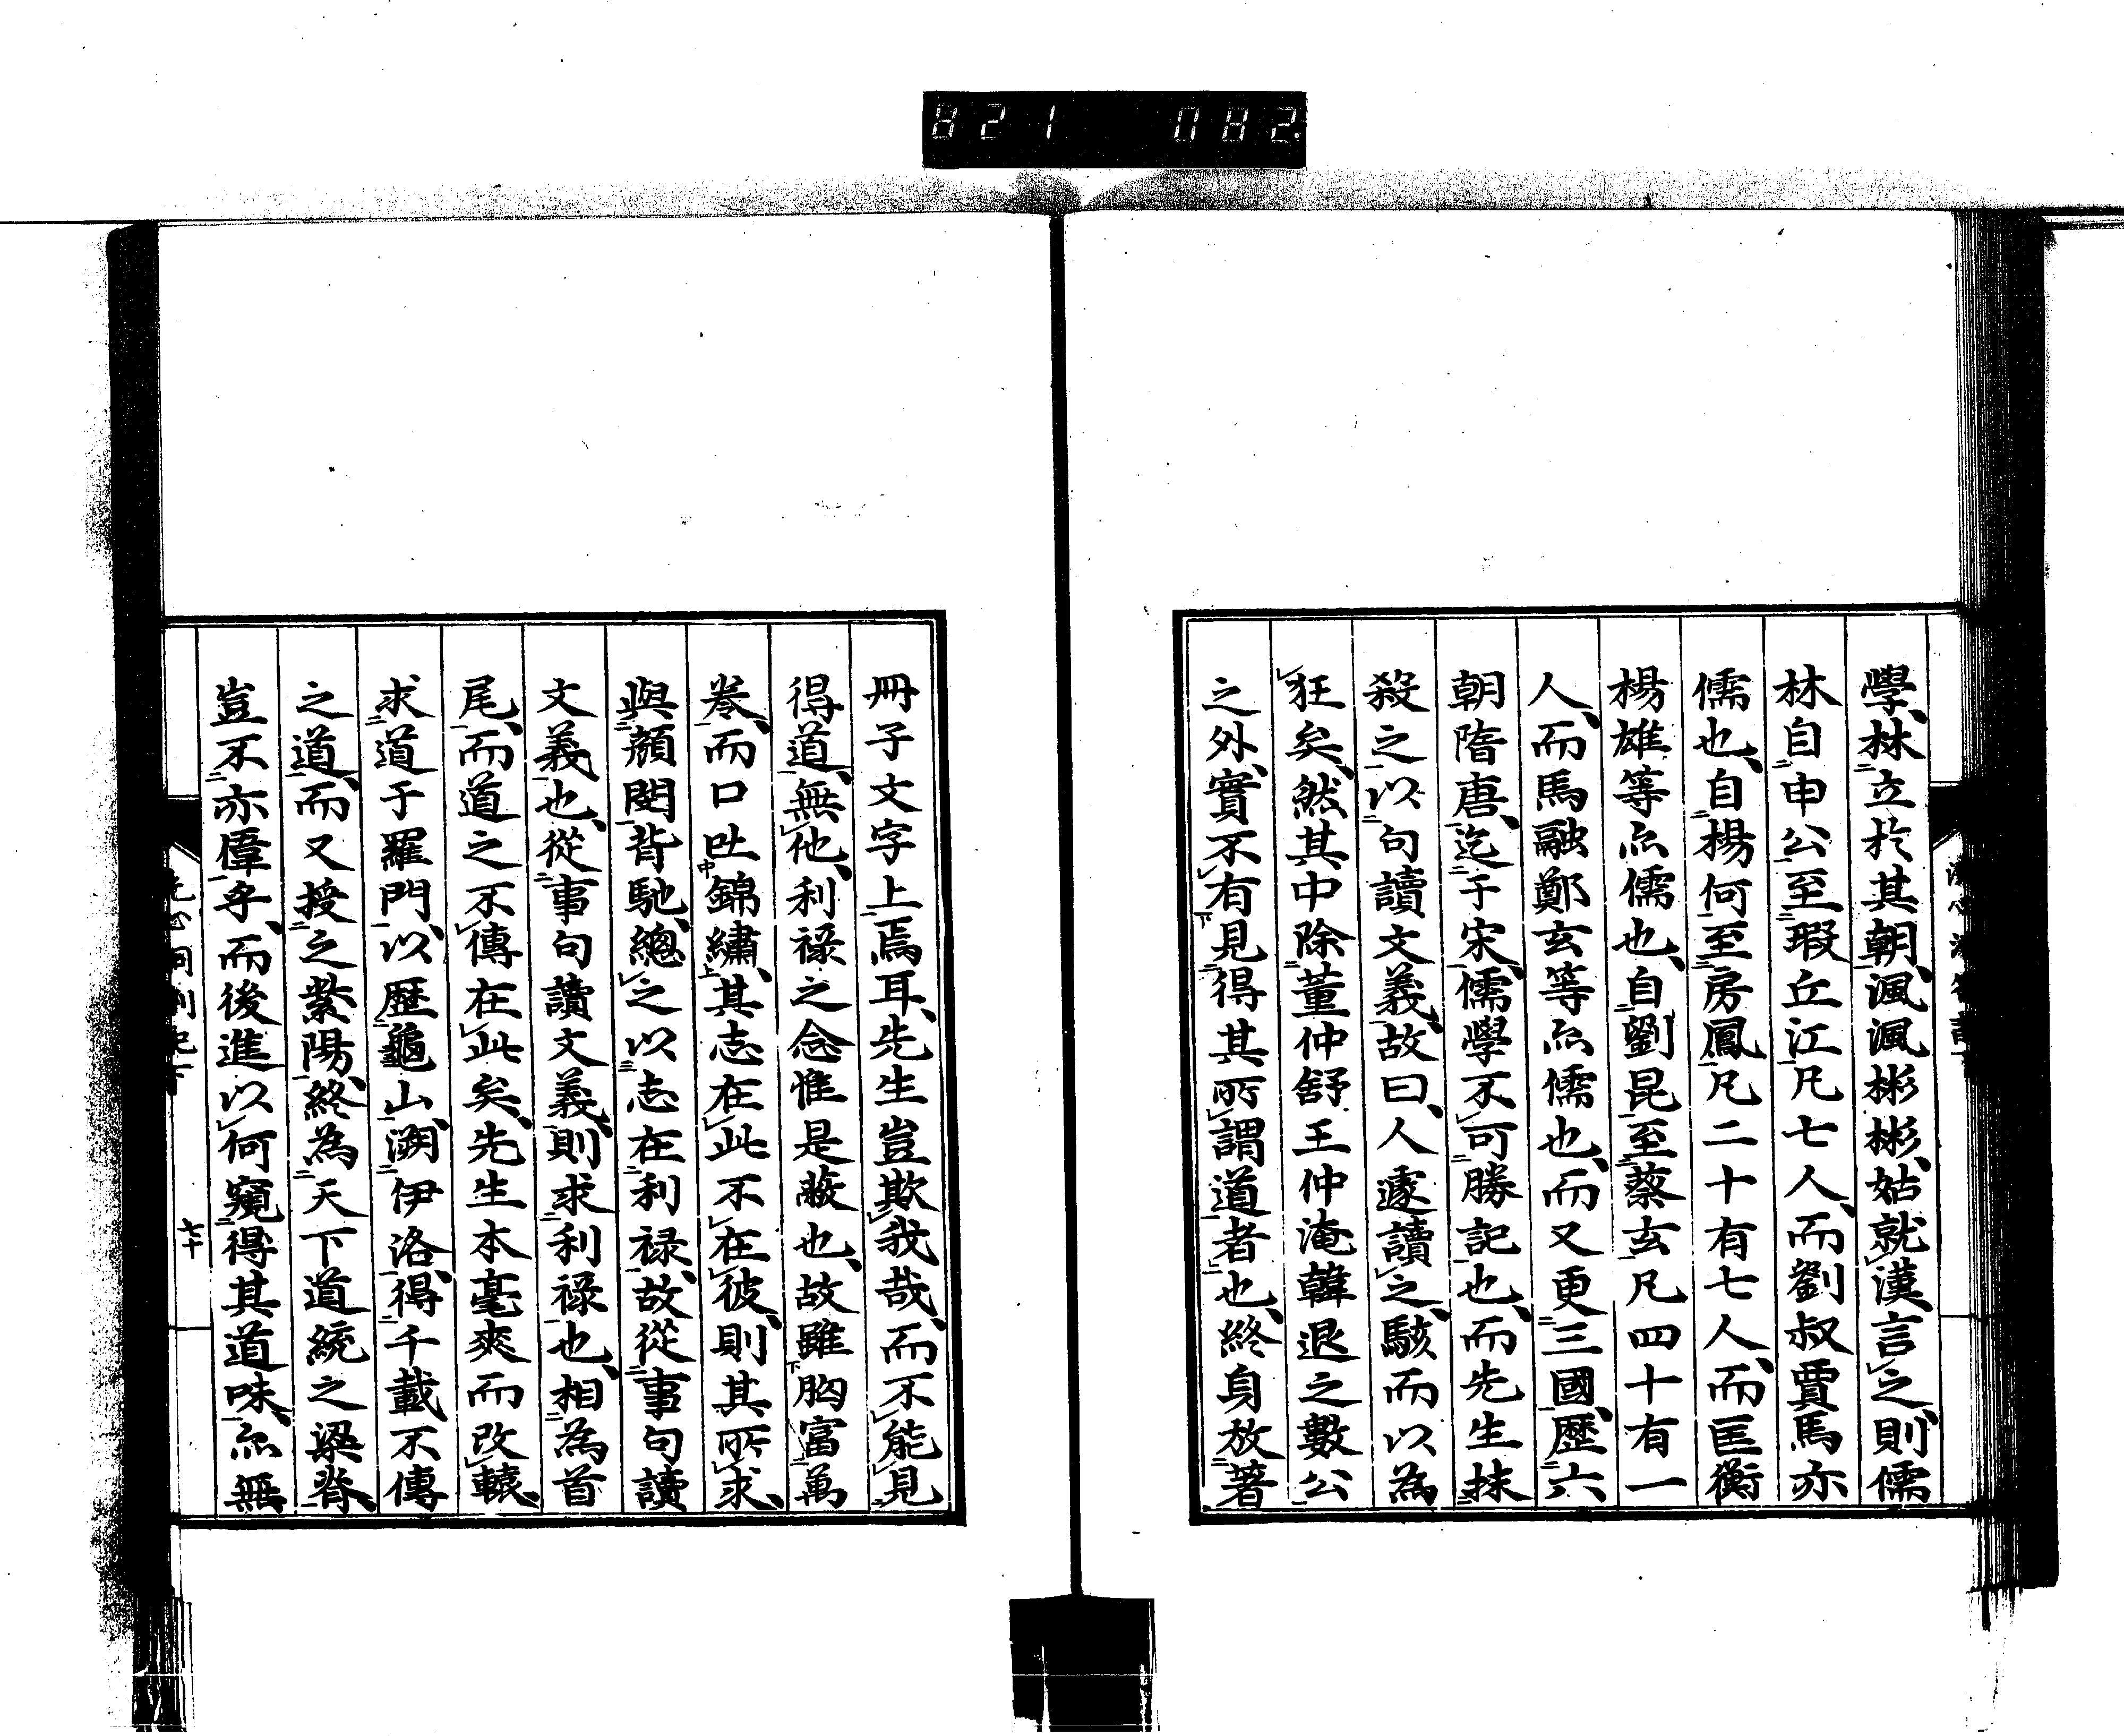 821 082
學、林立於其朝、渢渢彬彬、姑就漢言之、則儒
林自申公至瑕丘江凡七人、而劉叔賈馬亦
儒也、自楊何至房鳳凡二十有七人、而匡衡
楊雄等亦儒也、自劉昆至蔡玄凡四十有一
人、而馬融鄭玄等亦儒也、而又更三國歷六
朝隋唐、迄于宋、儒學不可勝記也、而先生抹
殺之以句讀文義、故曰、人遽讀之、駭而以為
狂矣、然其中除董仲舒王仲淹韓退之數公
之外、實不有見得其所謂道者也、終身放著
冊子文字上焉耳、先生豈欺我哉、而不能見
得道、無他、利祿之念惟是蔽也、故雖胸富萬
卷、而口吐錦繡、其志在此不在彼、則其所求、
與顏閔背馳、總之以志在利祿、故從事句讀
文義也、從事句讀文義、則求利祿也、相為首
尾、而道之不傳在此矣、先生本毫爽而改轅、
求道于羅門、以歷龜山、溯伊洛、得千載不傳
之道、而又授之紫陽、終為天下道統之梁脊、
豈不亦偉乎、而後進以何窺得其道味、亦無
七十